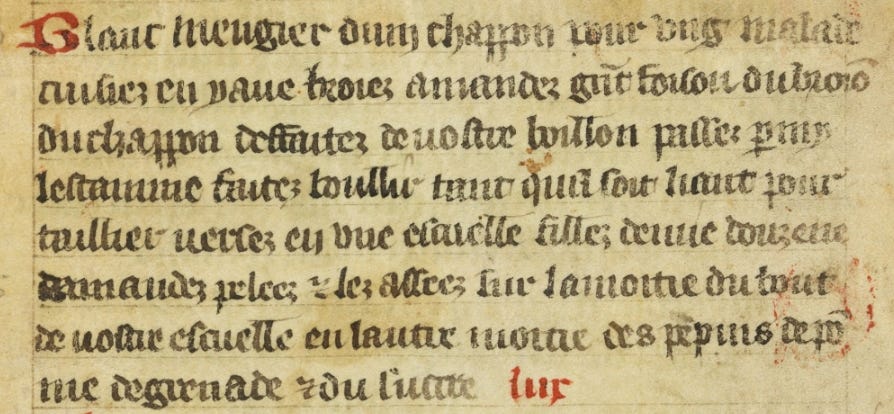 Blanc mengier dung chappon pour ung malade
cuisiez en yaue broiez amandez gnt foison du broion
du chappon deffaitez de vostre boillon passez pmy
lestamine faitez boullir tant quil soit liant pour
taillier versez en une escuelle fillez demie douzene
damandez pelees ⁊ lez asseez sur la moitie du bout
de vostre escuelle en lautre moitie des pepins de põ
me degrenade ⁊ du succre lux